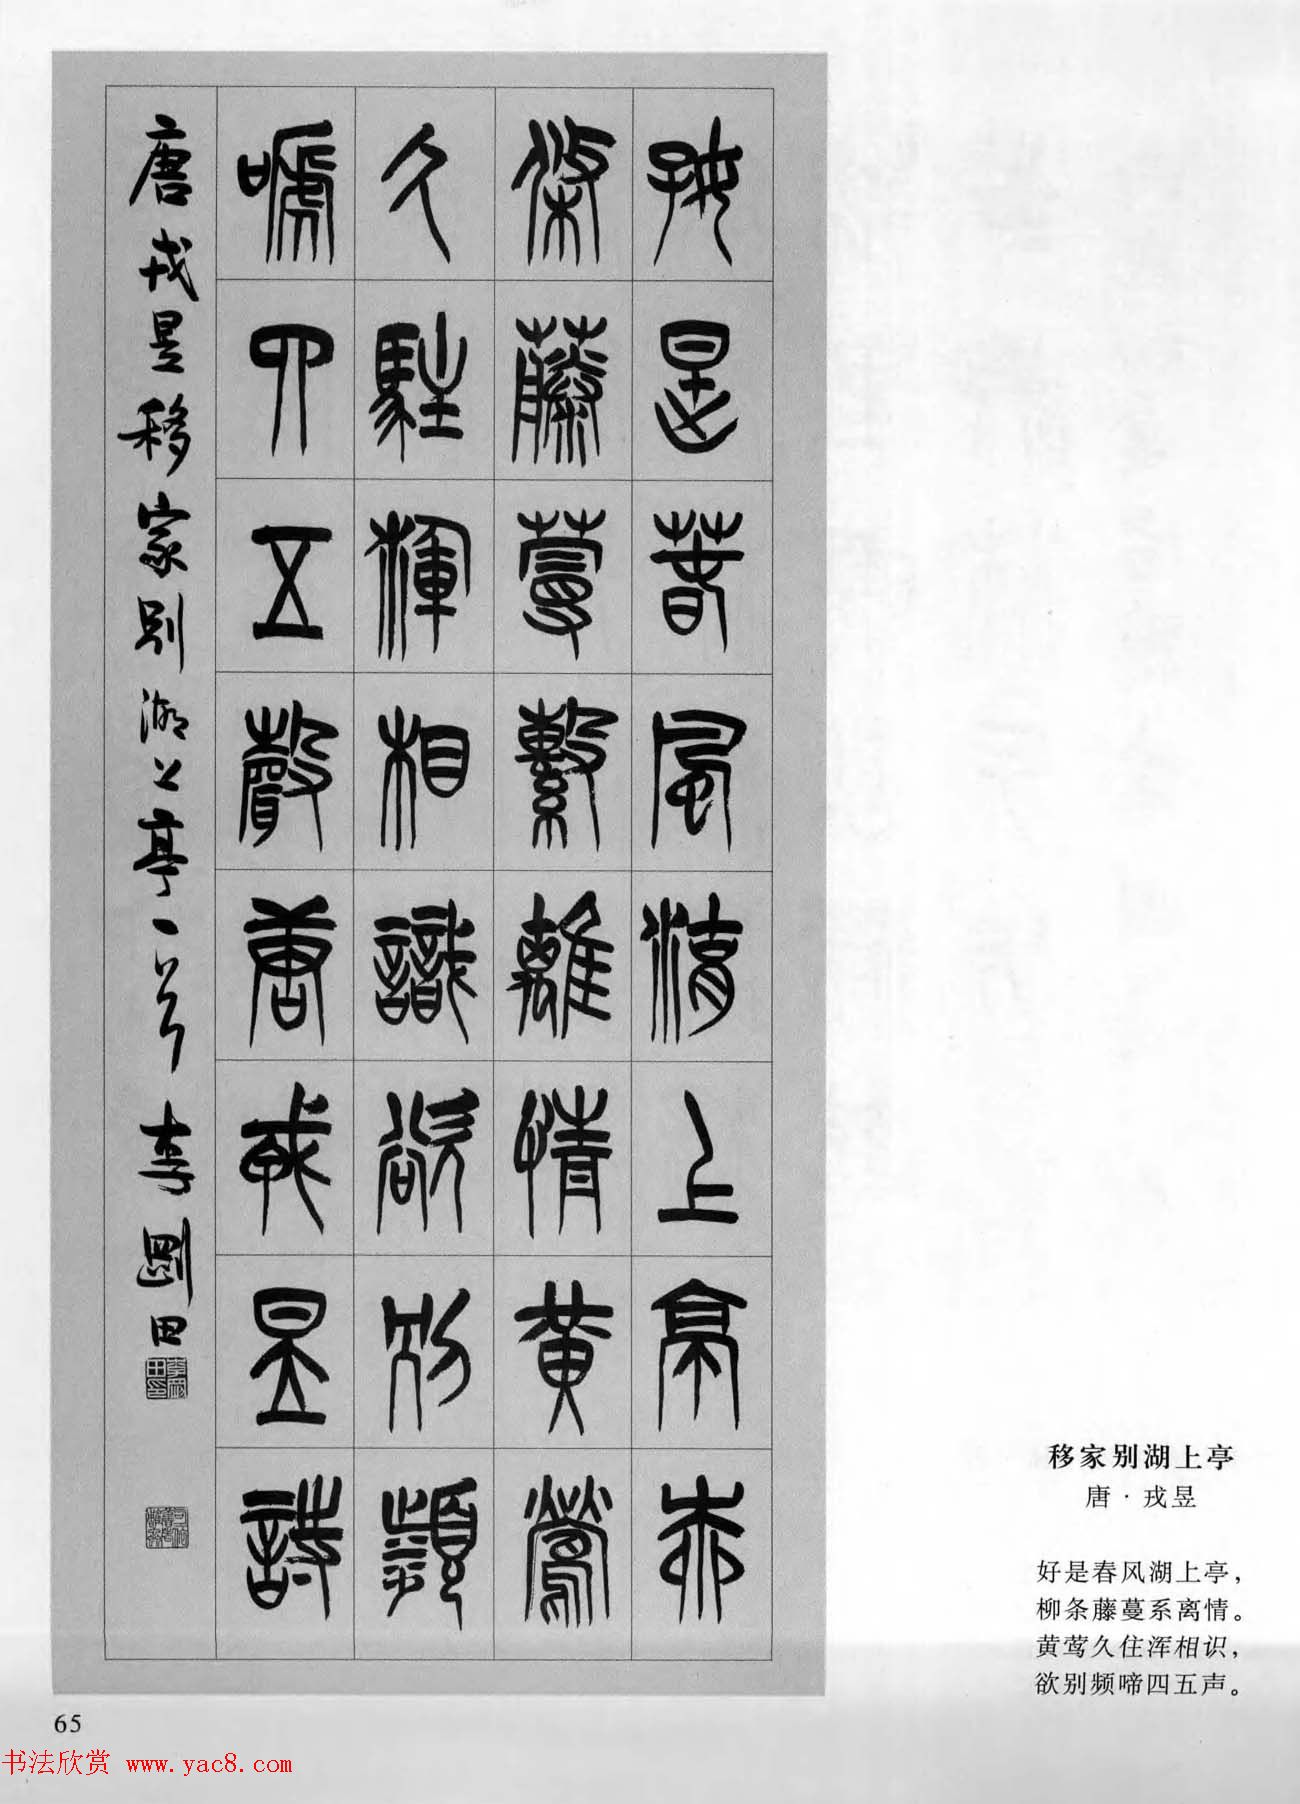 好是春風湖上亭柳
條藤蔓繫離情黃鶯
久駐渾相識欲別頻
嗁四五聲唐戎昱詩
唐戎昱移家別湖上亭一首李剛田
移家别湖上亭
唐·戎昱
好是春风湖上亭，
柳条藤蔓系离情。
黄莺久住浑相识，
欲别频啼四五声。
65
书法欣赏 www.yac8.com